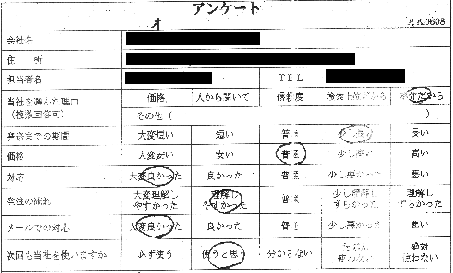 アンケート
会社名
住 所
担当者名 TEL
当社を選んだ理由 価格 人から聞いて 信頼度
(複数回答可) その他 ( )
大変短い 短い 普通 長い
価格 大変安い 安い 普通 少し高い 高い
対応 大変良かった 良かった 普通 少し悪かった 悪い
大変理解し 理解し 普通 少し理解し 理解し
やすかった やすかった
メールでの対応 大変良かった 良かった 普通 少し悪かった 悪い
次回も当社を使いますか 必ず使う 使うと思う 分からない 絶対
使わない 使わない